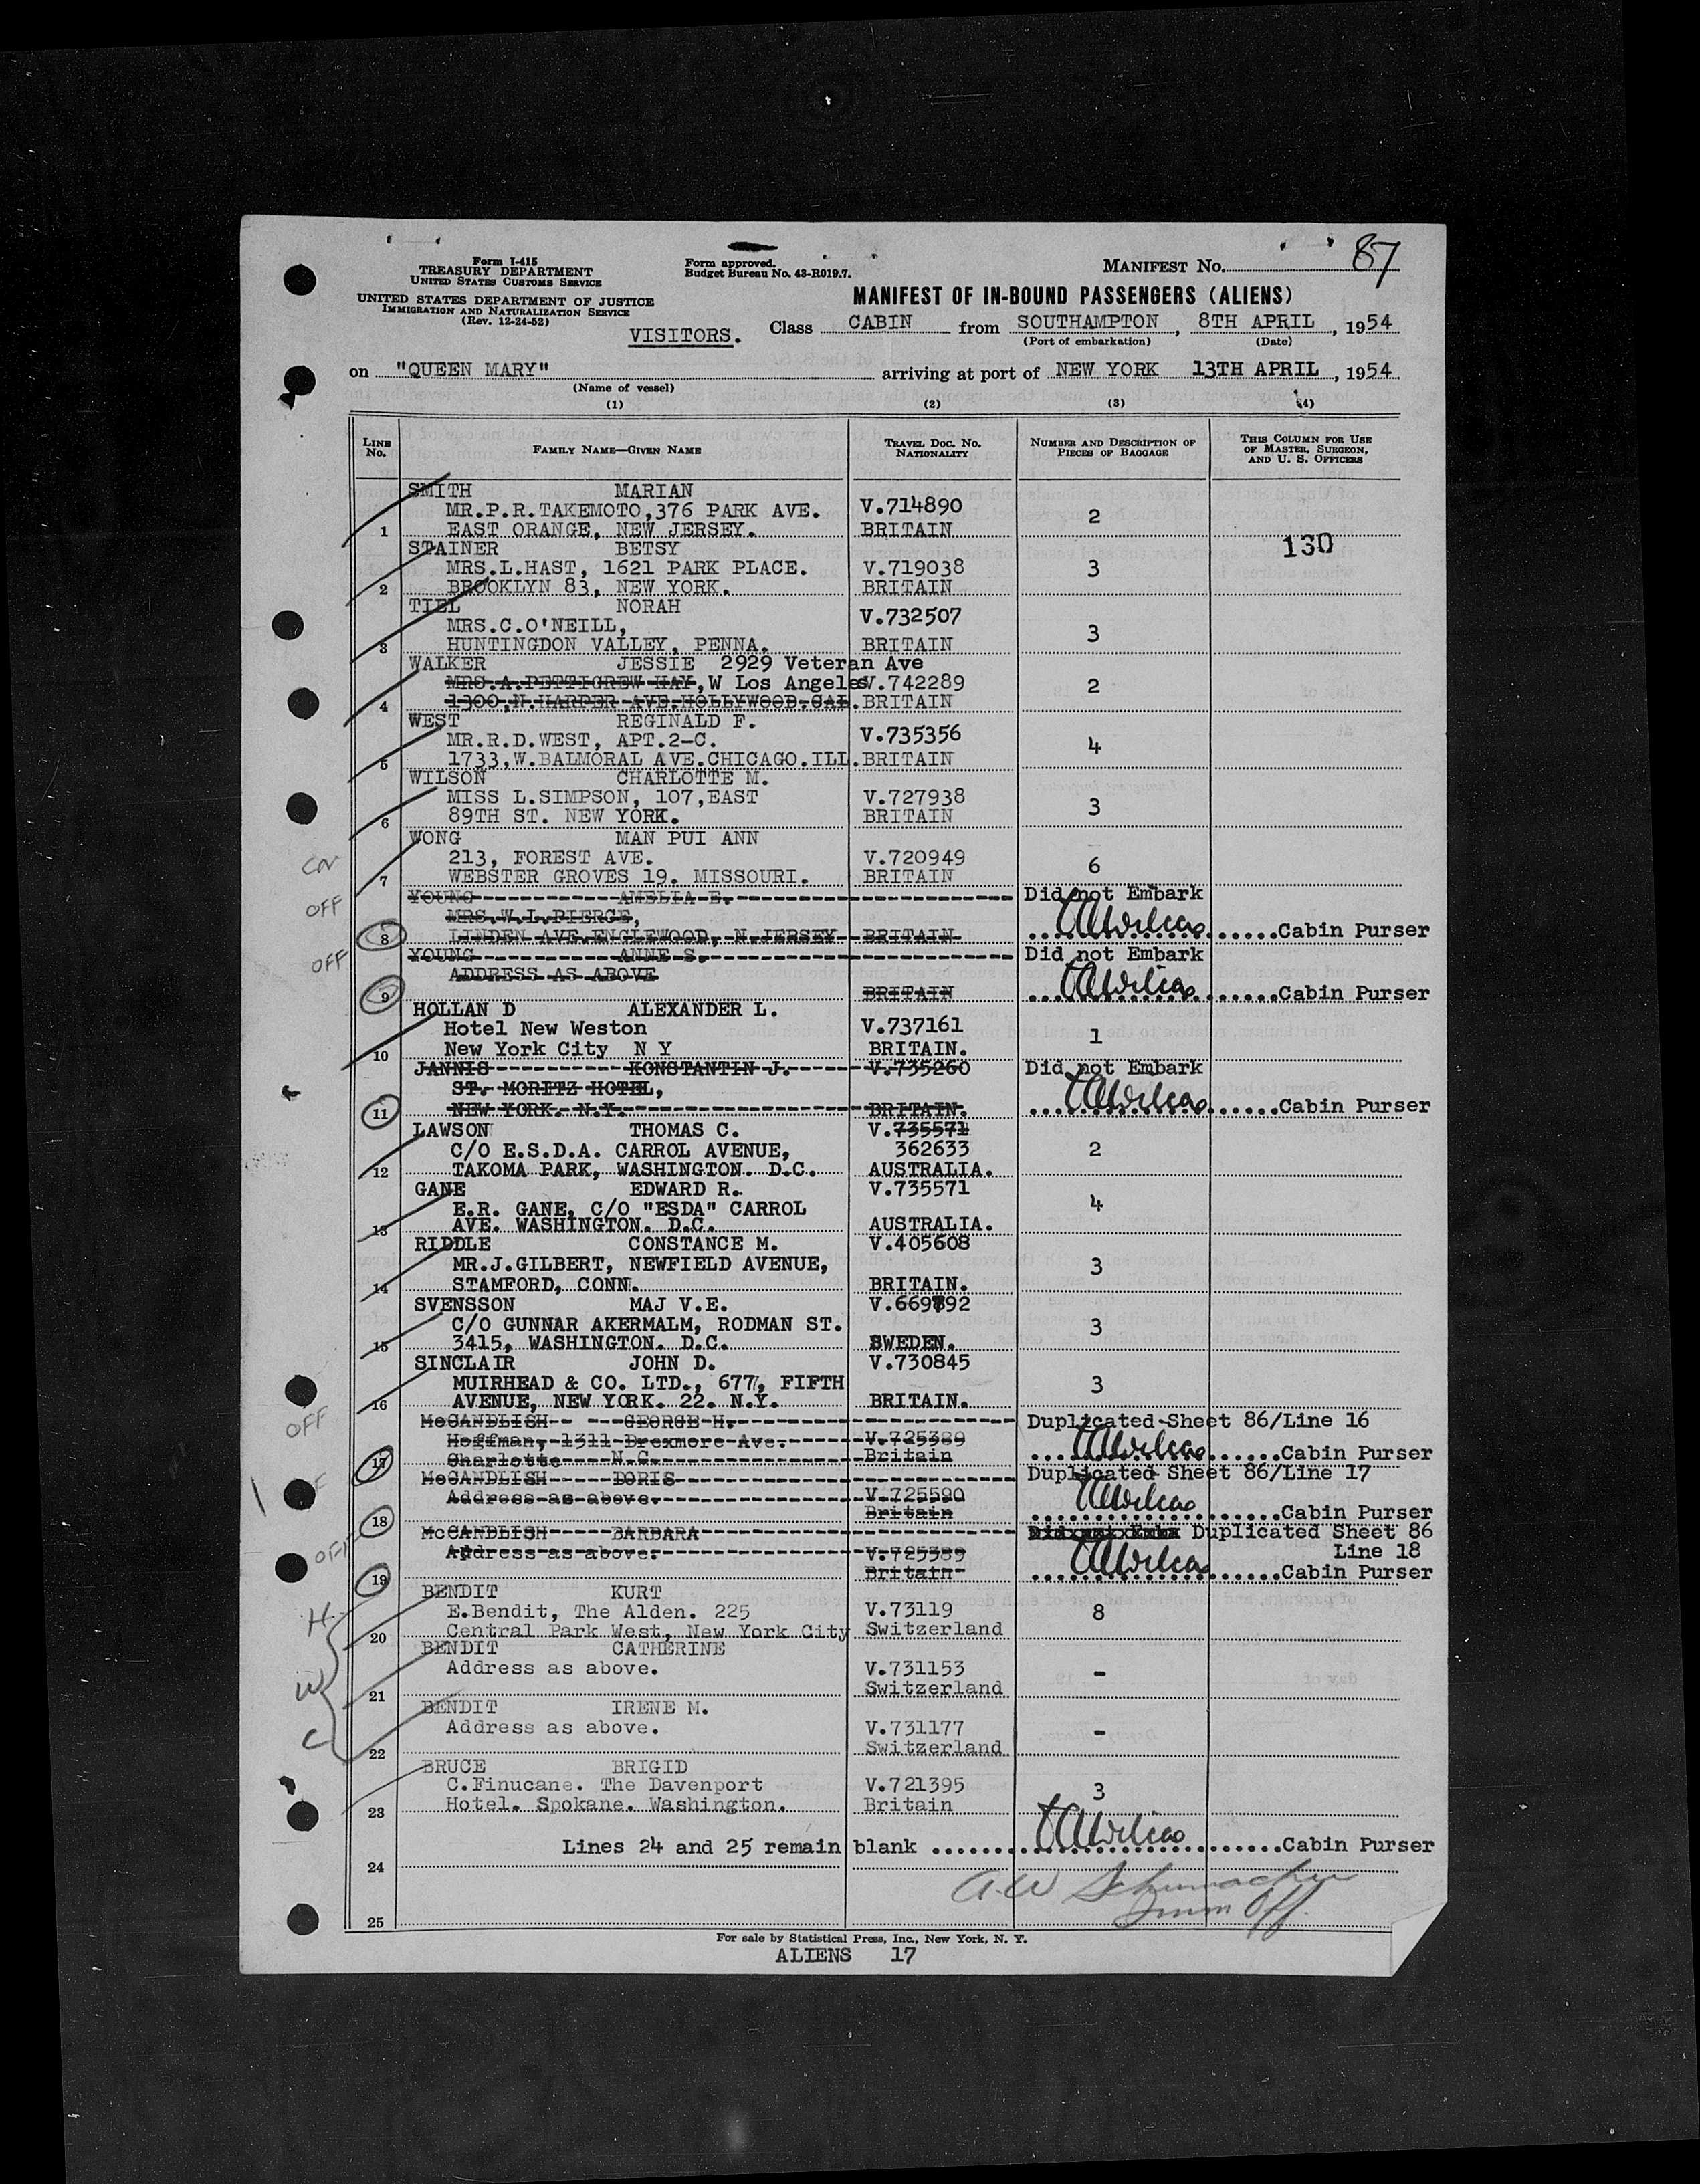 87
Form I-415
TREASURY DEPARTMENT
UNITED STATES CUSTOMS SERVICE
Form approved.
Budget Bureau No. 43-R019.7.
MANIFEST No.
UNITED STATES DEPARTMENT OF JUSTICE
IMMIGRATION AND NATURALIZATION SERVICE
(Rev. 12-24-52)
MANIFEST OF IN-BOUND PASSENGERS (ALIENS)
VISITORS. Class CABIN from SOUTHAMPTON, 8TH APRIL, 1954
(Port of embarkation) (Date)
on "QUEEN MARY" arriving at port of NEW YORK 13TH APRIL, 1954
(Name of vessel)
(1) (2) (3) (4)
LINE No. FAMILY NAME—GIVEN NAME TRAVEL DOC. NO. NATIONALITY NUMBER AND DESCRIPTION OF PIECES OF BAGGAGE THIS COLUMN FOR USE OF MASTER, SURGEON, AND U. S. OFFICERS
SMITH MARIAN
MR.P.R.TAKEMOTO,376 PARK AVE. V.714890 2
1 EAST ORANGE, NEW JERSEY. BRITAIN
STAINER BETSY 130
MRS.L.HAST, 1621 PARK PLACE. V.719038 3
2 BROOKLYN 83, NEW YORK. BRITAIN
TIEL NORAH V.732507
MRS.C.O'NEILL, 3
3 HUNTINGDON VALLEY, PENNA. BRITAIN
WALKER JESSIE 2929 Veteran Ave
MRS.A.PETTIGREW HAY, W Los Angeles V.742289 2
4 1300,N.HARPER AVE.HOLLYWOOD.CAL. BRITAIN
WEST REGINALD F. V.735356
MR.R.D.WEST, APT.2-C. 4
5 1733,W.BALMORAL AVE.CHICAGO.ILL. BRITAIN
WILSON CHARLOTTE M.
MISS L.SIMPSON, 107,EAST V.727938 3
6 89TH ST. NEW YORK. BRITAIN
WONG MAN PUI ANN
213, FOREST AVE. V.720949 6
7 WEBSTER GROVES 19. MISSOURI. BRITAIN
OFF YOUNG AMELIA E. Did not Embark
MRS.W.L.PIERCE,
8 LINDEN AVE.ENGLEWOOD, N.JERSEY BRITAIN Cabin Purser
OFF YOUNG ANNE S. Did not Embark
ADDRESS AS ABOVE
9 BRITAIN Cabin Purser
HOLLAN D ALEXANDER L.
Hotel New Weston V.737161 1
10 New York City N Y BRITAIN.
JANNIS KONSTANTIN J. V.735260 Did not Embark
ST. MORITZ HOTEL,
11 NEW YORK. N.Y. BRITAIN. Cabin Purser
LAWSON THOMAS C. V.735571
C/O E.S.D.A. CARROL AVENUE, 362633 2
12 TAKOMA PARK, WASHINGTON. D.C. AUSTRALIA.
GANE EDWARD R. V.735571
E.R. GANE, C/O "ESDA" CARROL 4
13 AVE. WASHINGTON. D.C. AUSTRALIA.
RIDDLE CONSTANCE M. V.405608
MR.J.GILBERT, NEWFIELD AVENUE, 3
14 STAMFORD, CONN. BRITAIN.
SVENSSON MAJ V.E. V.669892
C/O GUNNAR AKERMALM, RODMAN ST. 3
15 3415, WASHINGTON. D.C. SWEDEN.
SINCLAIR JOHN D. V.730845
MUIRHEAD & CO. LTD., 677, FIFTH 3
16 AVENUE, NEW YORK. 22. N.Y. BRITAIN.
OFF McCANDLISH GEORGE H. Duplicated Sheet 86/Line 16
Hoffman, 1311 Drexmore Ave. V.725389
17 Charlotte N.C. Britain Cabin Purser
McCANDLISH DORIS Duplicated Sheet 86/Line 17
Address as above. V.725590
18 Britain Cabin Purser
OFF McCANDLISH BARBARA Duplicated Sheet 86
Address as above. V.725389 Line 18
19 Britain Cabin Purser
H BENDIT KURT
E.Bendit, The Alden. 225 V.73119 8
20 Central Park West, New York City Switzerland
BENDIT CATHERINE
W Address as above. V.731153 -
21 Switzerland
BENDIT IRENE M.
C Address as above. V.731177 -
22 Switzerland
BRUCE BRIGID
C.Finucane. The Davenport V.721395 3
23 Hotel. Spokane. Washington. Britain
Lines 24 and 25 remain blank Cabin Purser
24
A.W Schumacher
Imm Off.
25
For sale by Statistical Press, Inc., New York, N. Y.
ALIENS 17